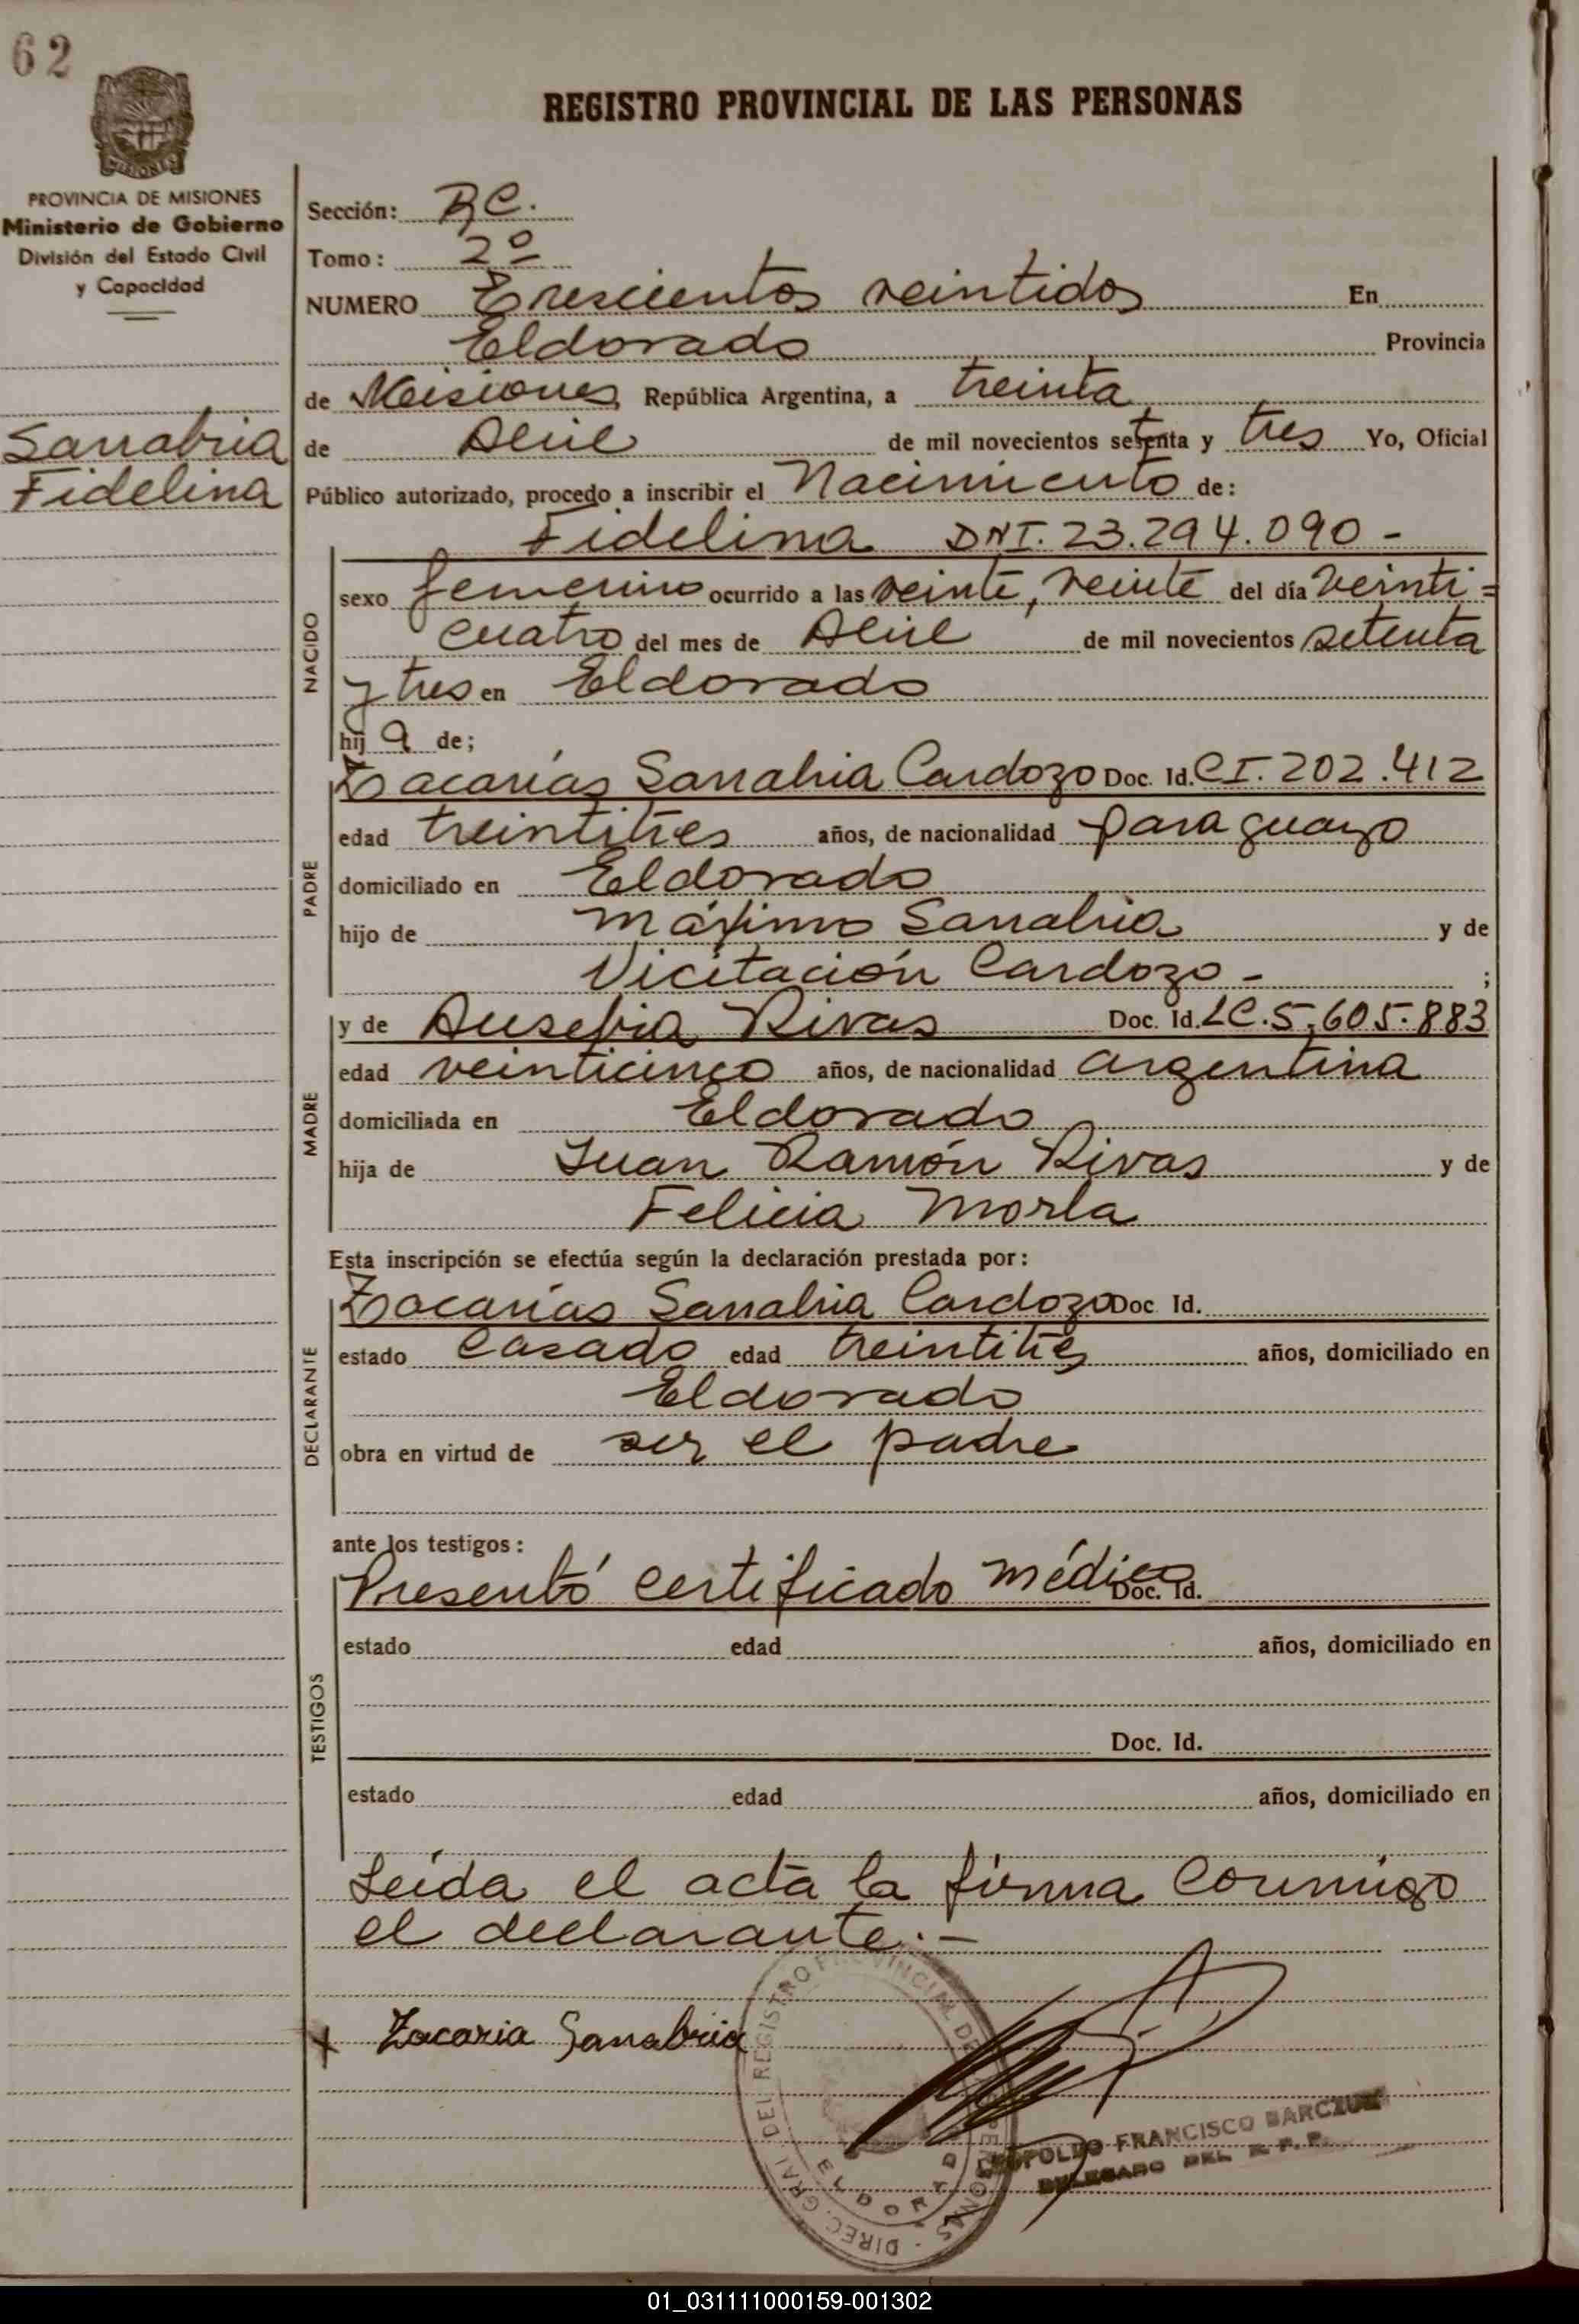 62
REGISTRO PROVINCIAL DE LAS PERSONAS
MISIONES
PROVINCIA DE MISIONES
Ministerio de Gobierno
División del Estado Civil
y Capacidad
Sanabria
Fidelina
Sección:
Tomo: 2º
NUMERO Trescientos veintidos En
Eldorado Provincia
de Misiones República Argentina, a treinta
de Abril de mil novecientos setenta y tres Yo, Oficial
Público autorizado, procedo a inscribir el Nacimiento de:
Fidelina DNI. 23.294.090 -
NACIDO
sexo femenino ocurrido a las veinte, veinte del día veinti=
cuatro del mes de Abril de mil novecientos setenta
y tres en Eldorado
hij a de;
PADRE
Zacarías Sanabria Cardozo Doc. Id. CI. 202.412
edad treintitres años, de nacionalidad paraguayo
domiciliado en Eldorado
hijo de Máximo Sanabria y de
Vicitación Cardozo - ;
MADRE
y de Ausebia Rivas Doc. Id. LC. 5.605.883
edad veinticinco años, de nacionalidad argentina
domiciliada en Eldorado
hija de Juan Ramón Rivas y de
Felicia Morla
Esta inscripción se efectúa según la declaración prestada por:
DECLARANTE
Zacarías Sanabria Cardozo Doc. Id.
estado casado edad treintitres años, domiciliado en
Eldorado
obra en virtud de ser el padre
ante los testigos:
TESTIGOS
Presentó certificado médico Doc. Id.
estado edad años, domiciliado en
Doc. Id.
estado edad años, domiciliado en
Leída el acta la firma conmigo
el declarante.-
x Zacaria Sanabria
DIREC. GRAL. DEL REGISTRO PROVINCIAL DE LAS PERSONAS
ELDORADO
LEOPOLDO FRANCISCO BARCZUK
DELEGADO DEL R. P. P.
01_031111000159-001302